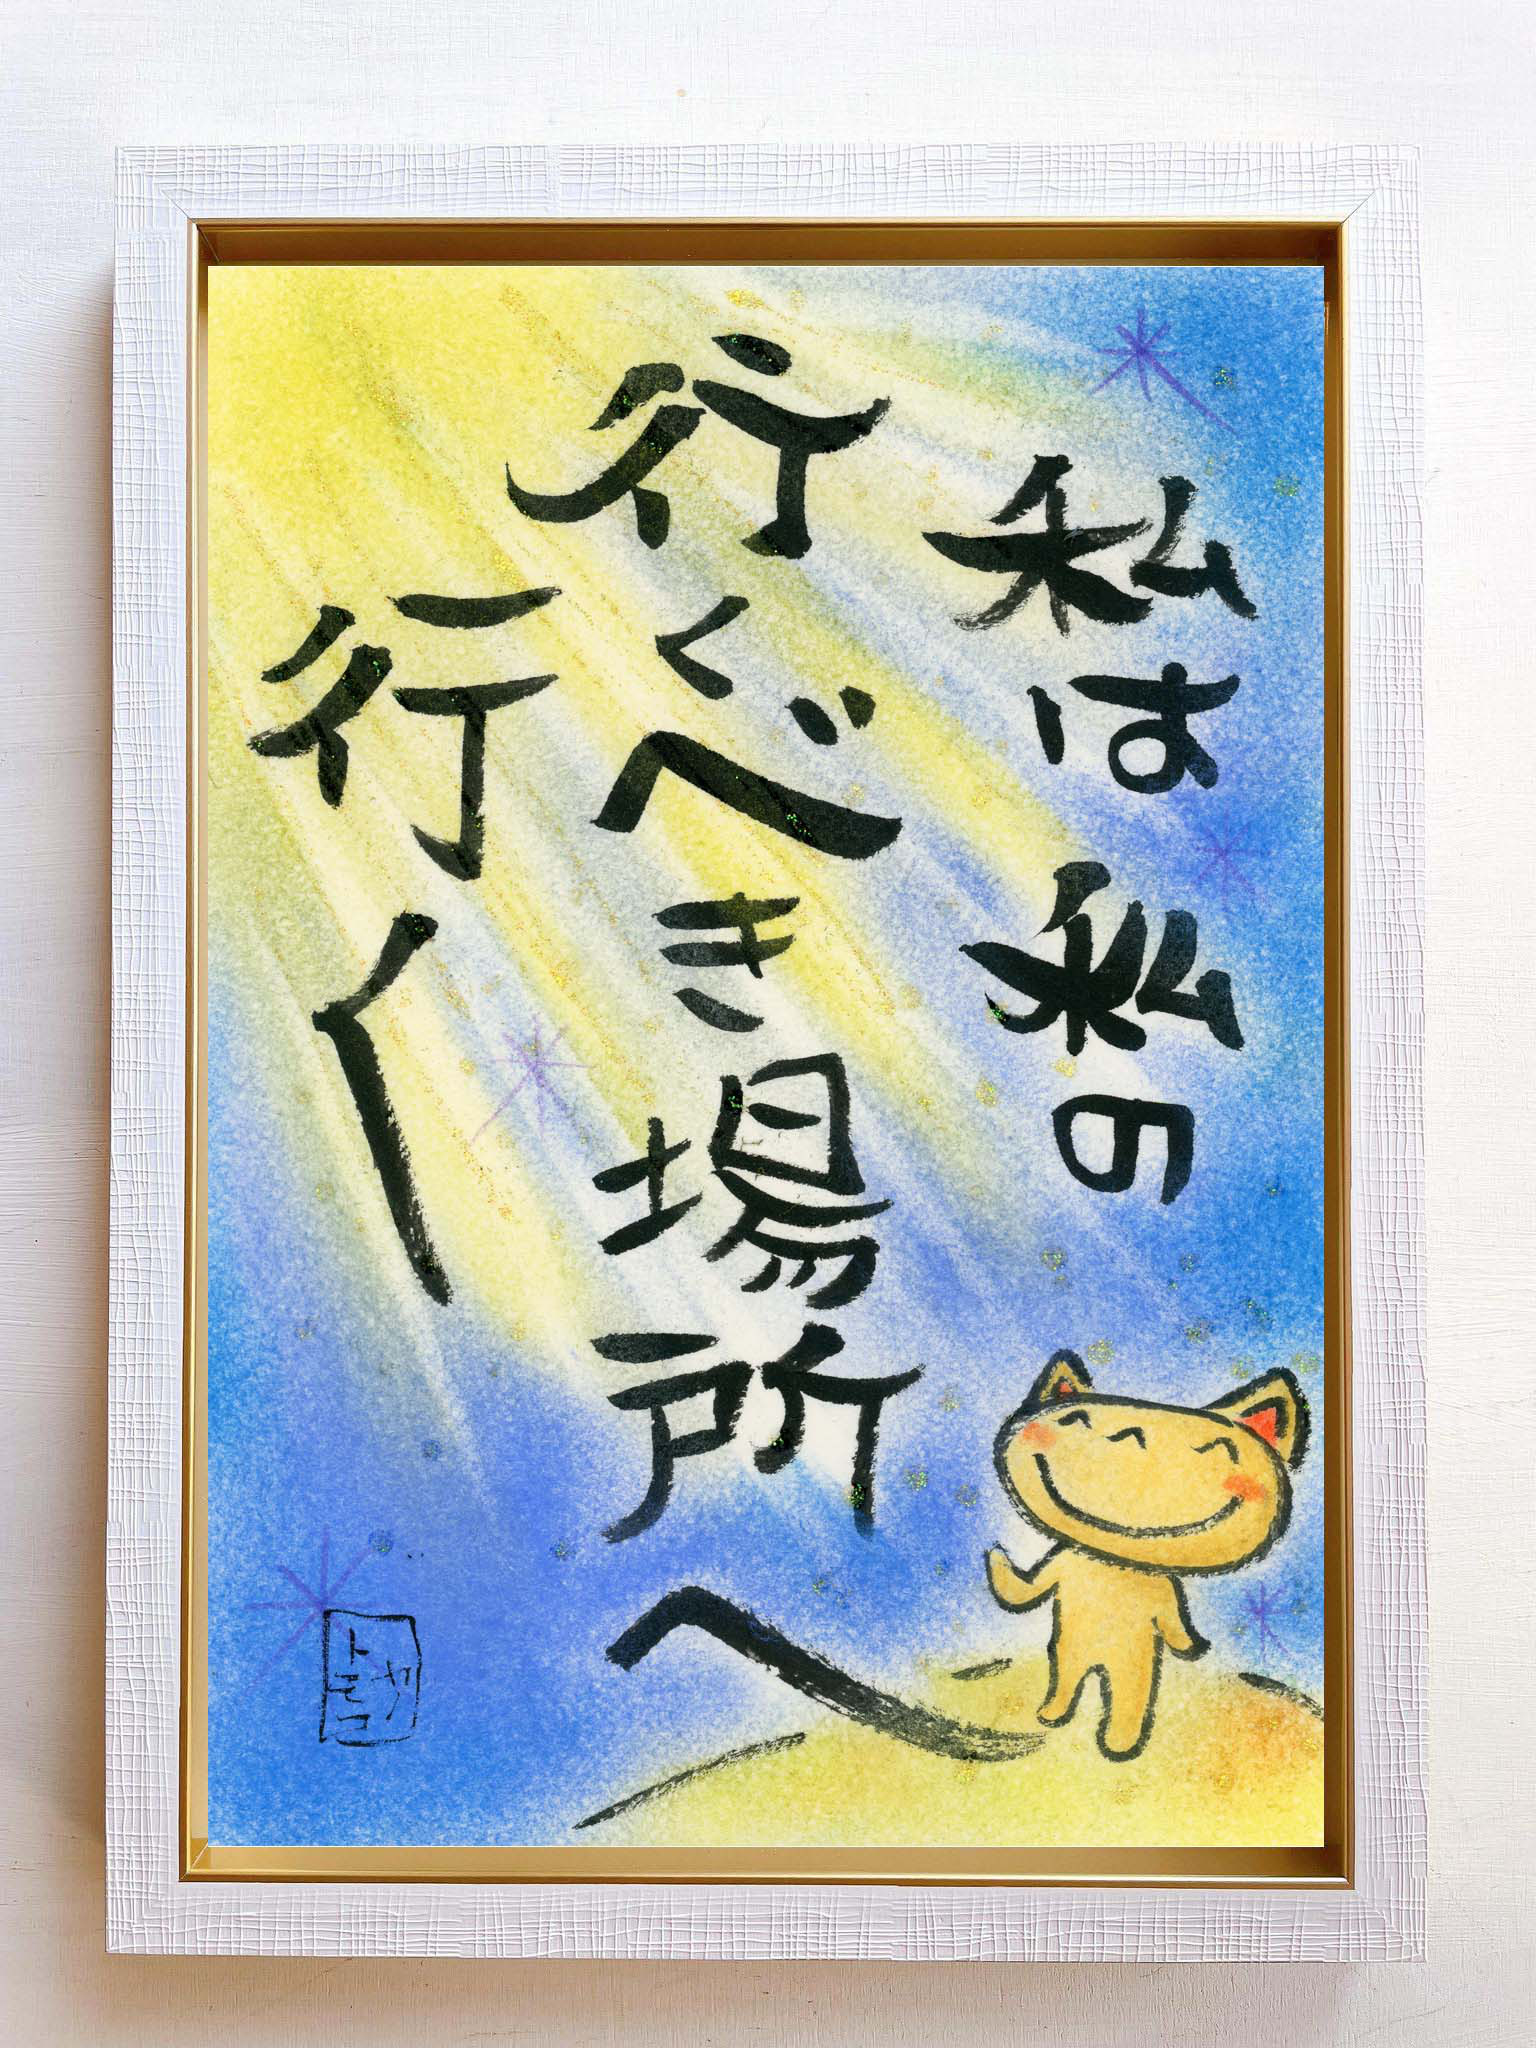 私は私の
行くべき場所へ
行く